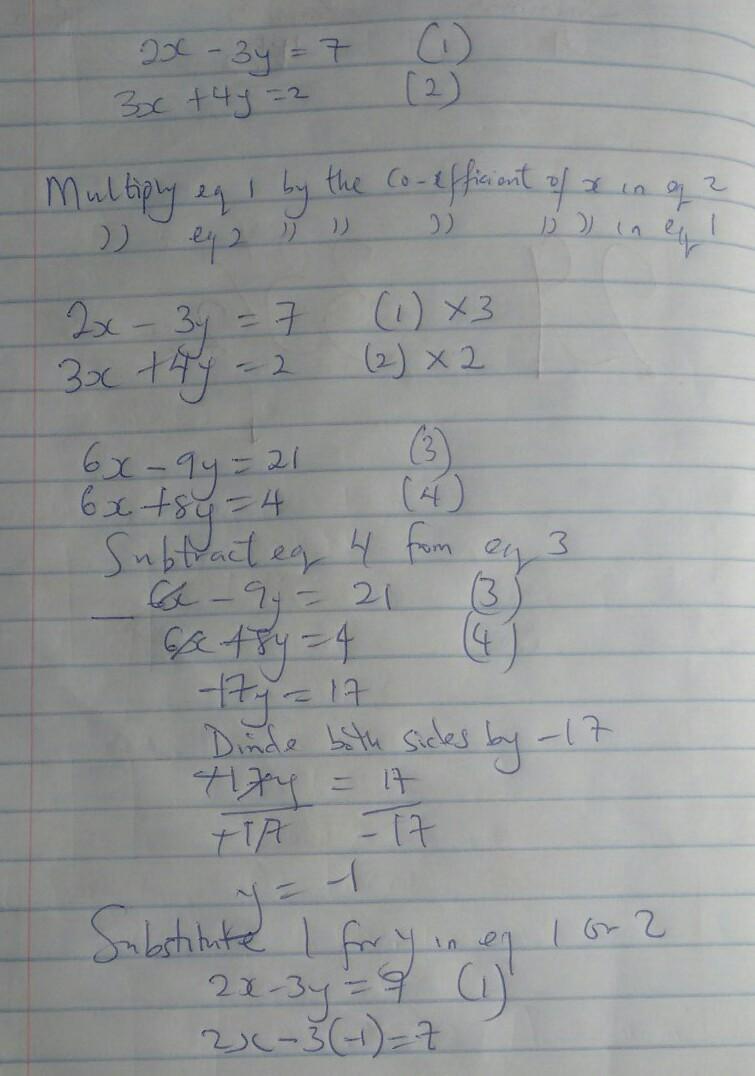 2x - 3y = 7 (1)
3x + 4y = 2 (2)
Multiply eq 1 by the co-efficient of x in eq 2
)) eq 2 )) )) )) )) )) in eq 1
2x - 3y = 7 (1) × 3
3x + 4y = 2 (2) × 2
6x - 9y = 21 (3)
6x + 8y = 4 (4)
Subtract eq 4 from eq 3
- 6x - 9y = 21 (3)
6x + 8y = 4 (4)
-17y = 17
Divide both sides by -17
-17y = 17
-17 -17
y = -1
Substitute 1 for y in eq 1 or 2
2x - 3y = 7 (1)
2x - 3(-1) = 7